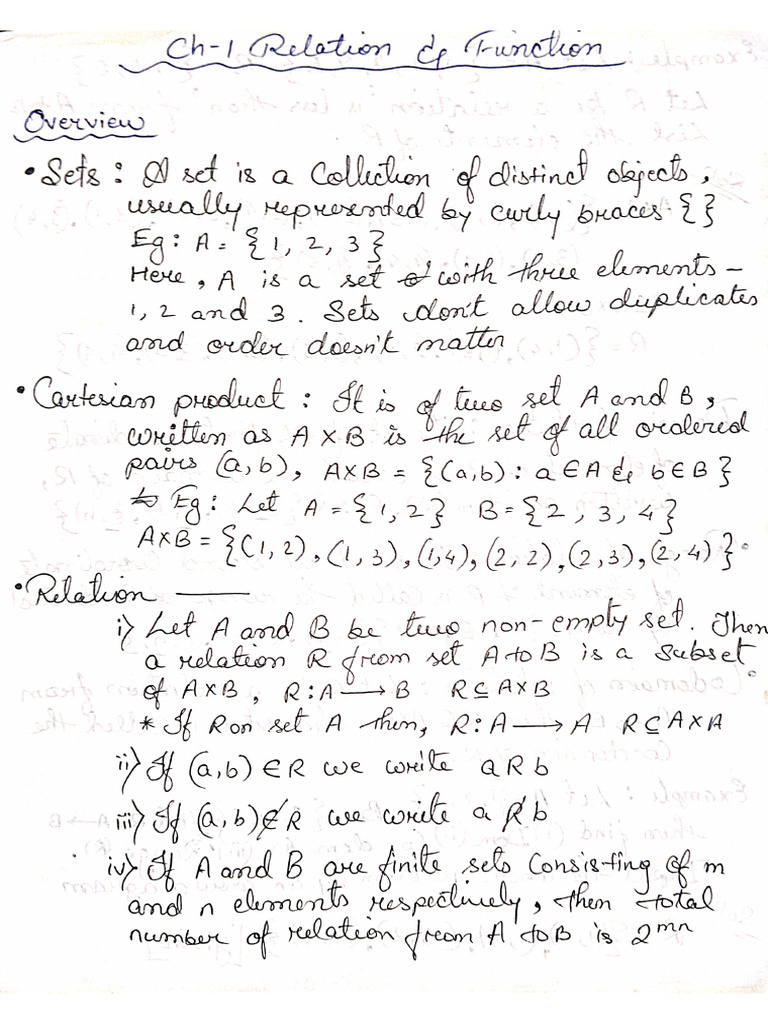 Ch-1 Relation & Function
Overview
• Sets : A set is a Collection of distinct objects,
usually represented by curly braces {}
Eg: A = {1, 2, 3}
Here, A is a set with three elements –
1, 2 and 3. Sets don't allow duplicates
and order doesn't matter
• Cartesian product : It is of two set A and B,
written as A×B is the set of all ordered
pairs (a, b), A×B = {(a,b) : a∈A & b∈B}
Eg: Let A = {1, 2} B = {2, 3, 4}
A×B = {(1, 2), (1, 3), (1,4), (2, 2), (2, 3), (2, 4)}
• Relation —
i) Let A and B be two non-empty set. Then
a relation R from set A to B is a subset
of A×B, R : A → B R ⊆ A×B
* If R on set A then, R : A → A R ⊆ A×A
ii) If (a, b) ∈ R we write a R b
iii) If (a, b) ∉ R we write a R̸ b
iv) If A and B are finite sets Consisting of m
and n elements respectively, then total
number of relation from A to B is 2ᵐⁿ